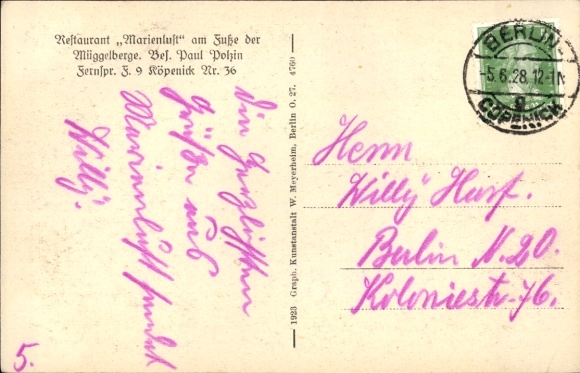 Restaurant „Marienlust" am Fuße der
Müggelberge. Bes. Paul Polzin
Fernspr. F. 9 Köpenick Nr. 36
Die Herzlichsten
Grüße aus
Marienlust sendet
Willÿ.
5.
1923 Graph. Kunstanstalt W. Meyerheim, Berlin O. 27. 4760
BERLIN
-5.6.28.12-1N
CÖPENICK
Herrn
Willÿ Harf.
Berlin N.20.
Koloniestr. 76.